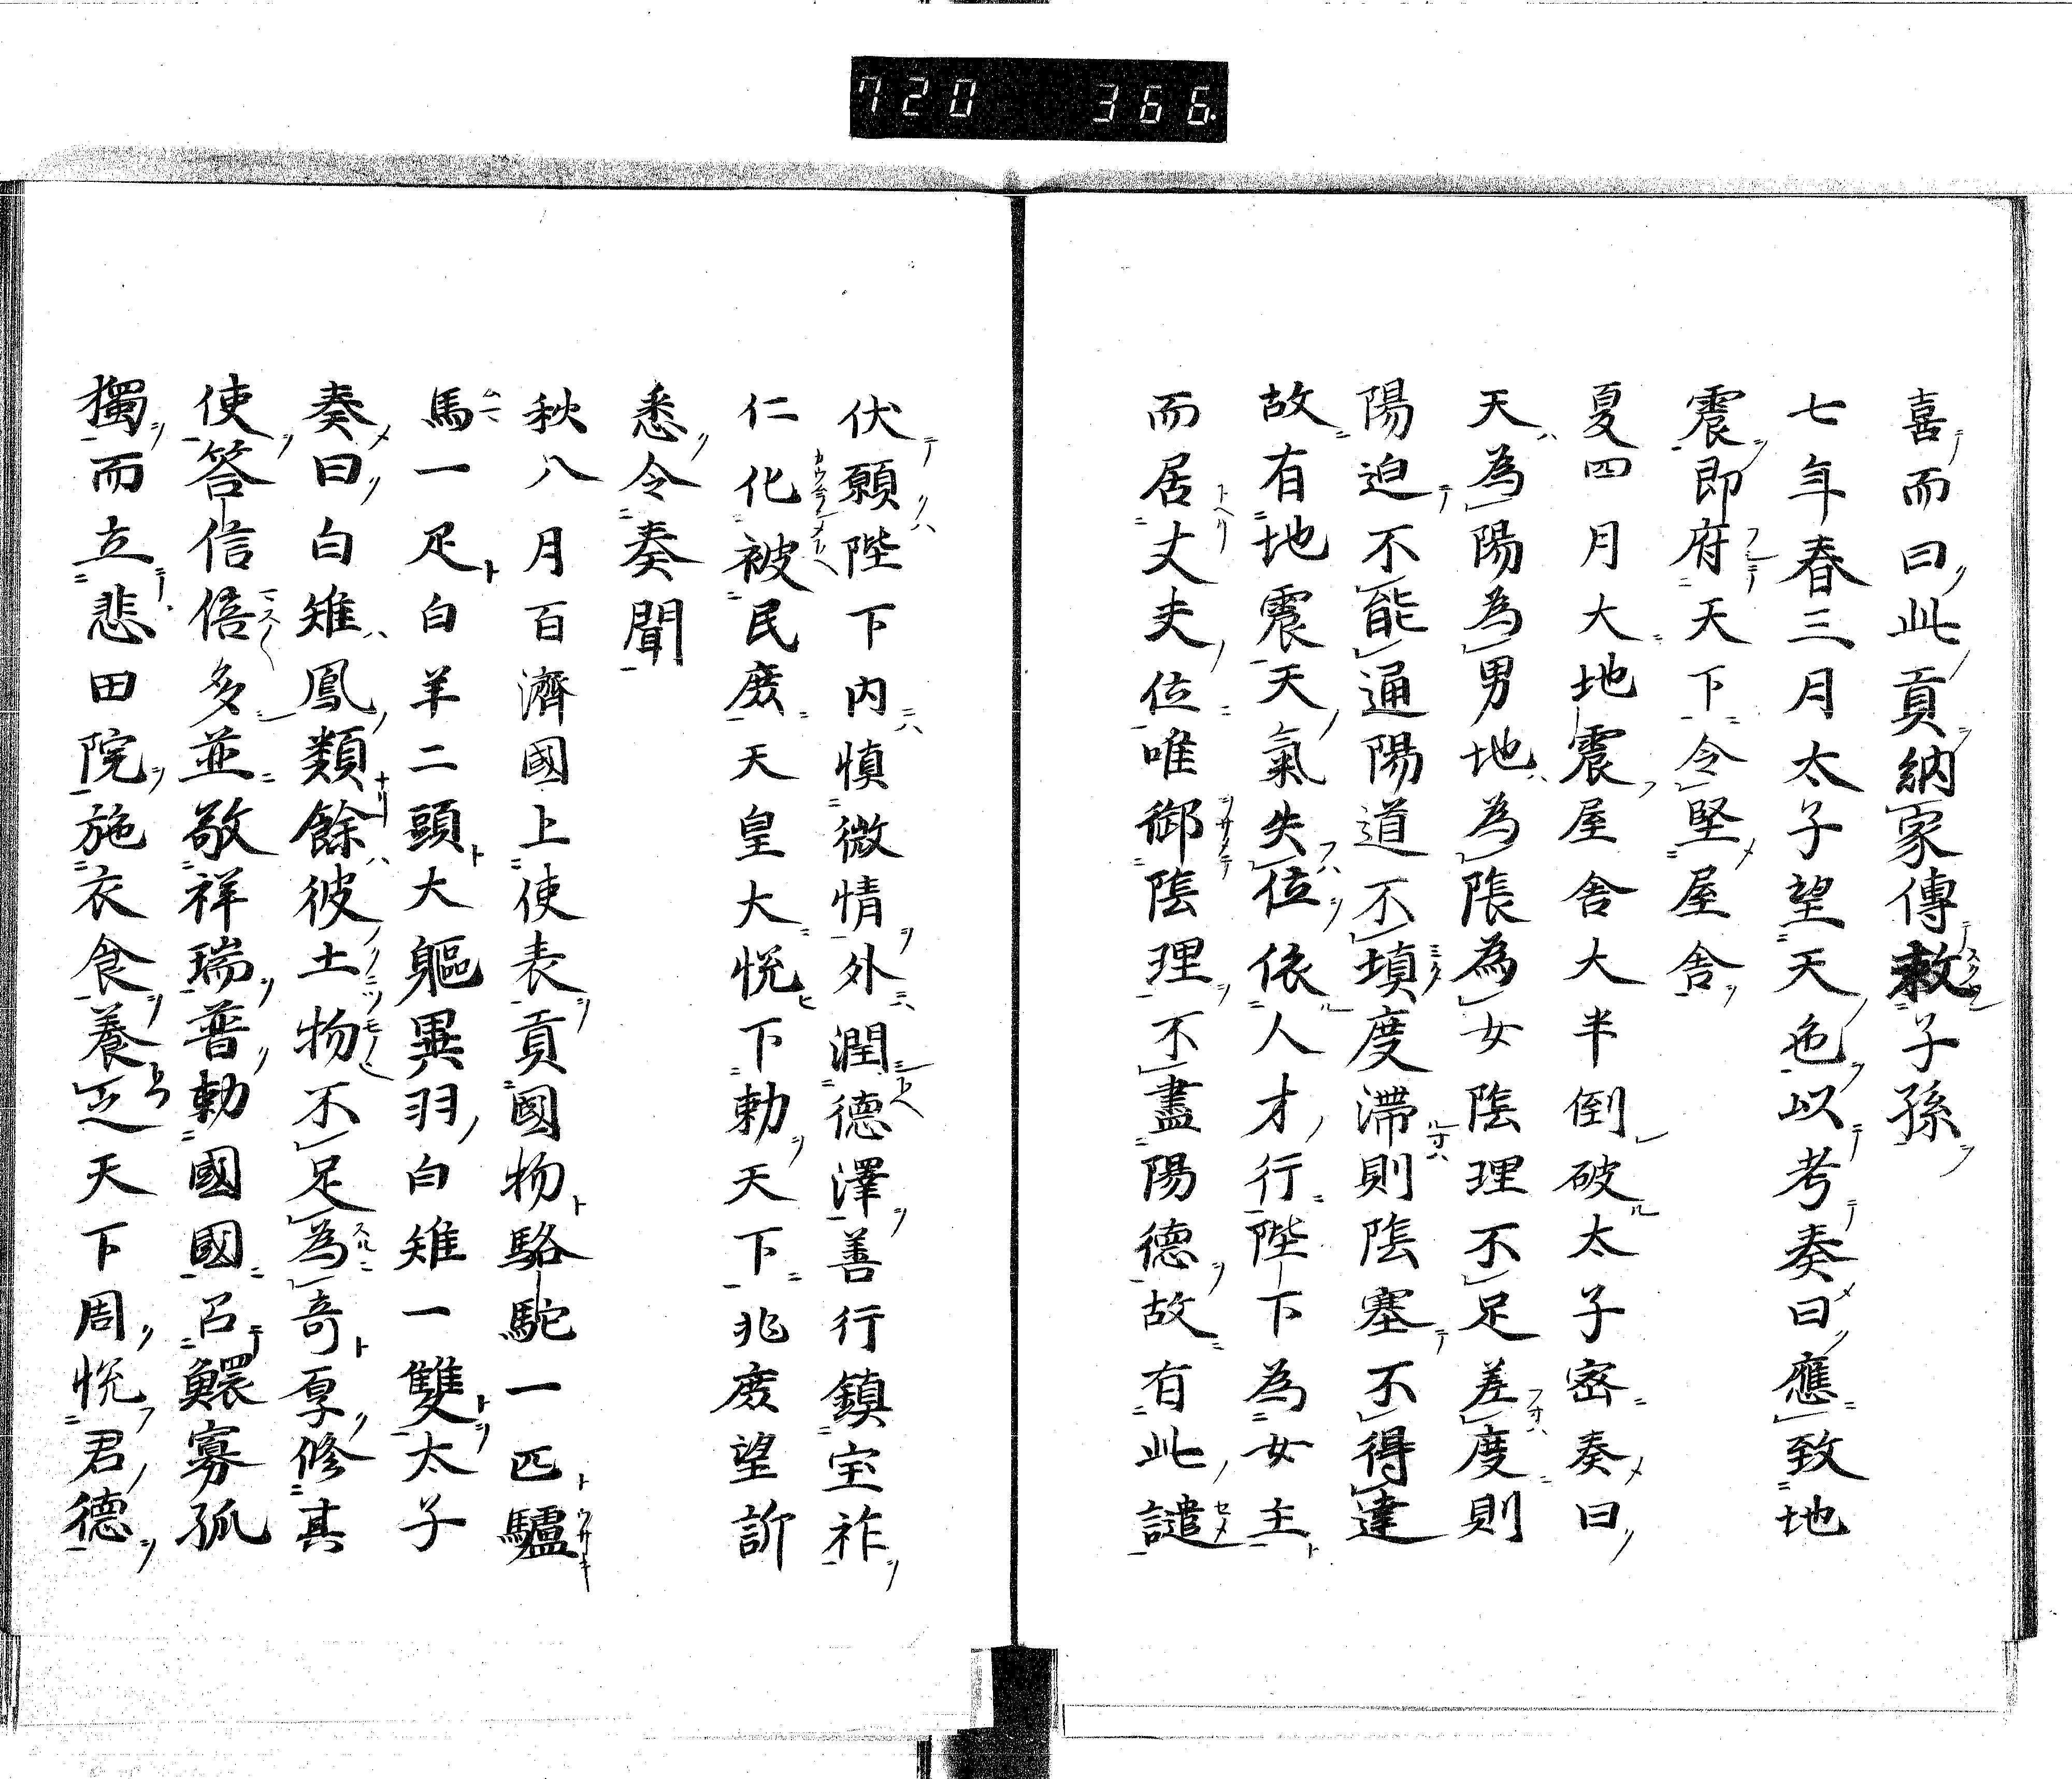 720 366.
喜而曰此貢納家傳敕子孫
七年春三月太子望天色以考奏曰應致地
震即府天下令堅屋舎
夏四月大地震屋舎大半倒破太子密奏曰
天為陽為男地為陰為女陰理不足差度則
陽迫不能通陽道不填度滞則陰塞不得達
故有地震天氣失位依人才行陛下為女主
而居丈夫位唯御陰理不盡陽德故有此譴
伏願陛下内慎微情外潤德澤善行鎮宝祚
仁化被民庶天皇大悦下勅天下兆庶望訴
悉令奏聞
秋八月百濟國上使表貢國物駱駝一匹驢
馬一疋白羊二頭大軀異羽白雉一雙太子
奏曰白雉鳳類餘彼土物不足為奇厚修其
使答信倍多並敬祥瑞普勅國國召鰥寡孤
獨而立悲田院施衣食養乏天下周悦君德